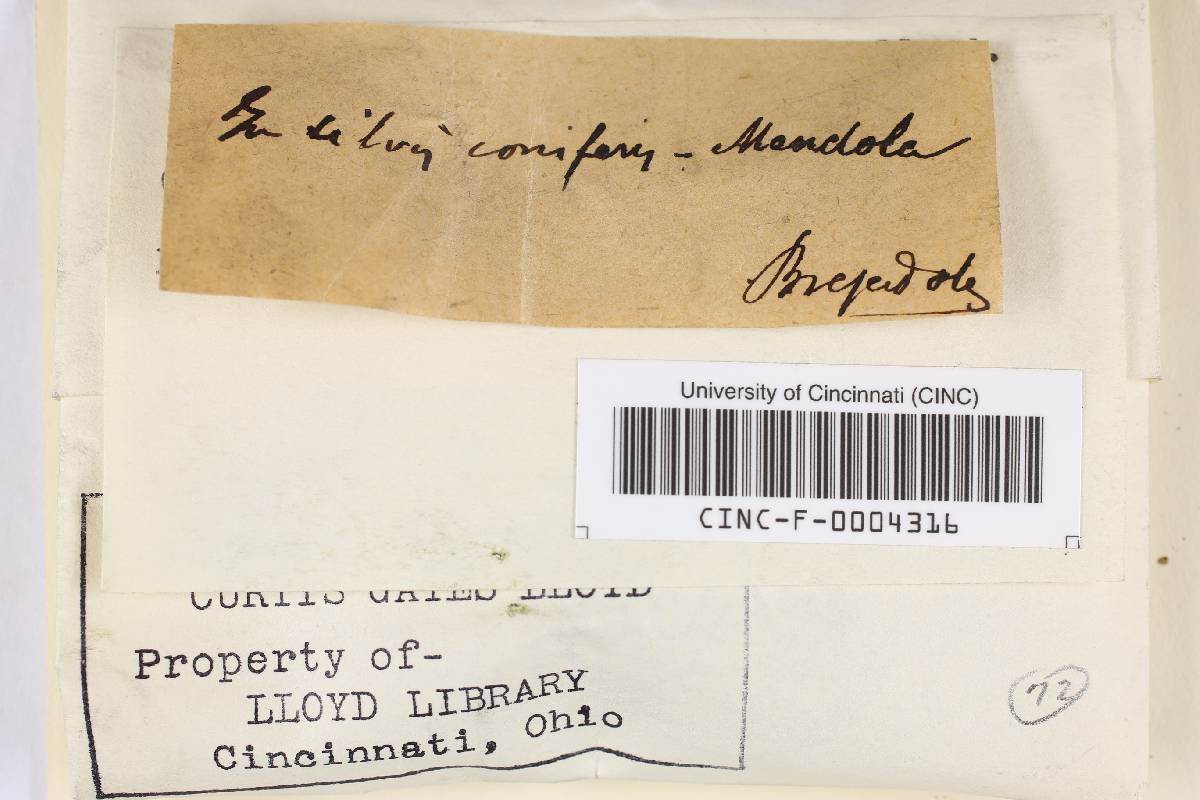 In silvis coniferis - Mendola
Bresadola
University of Cincinnati (CINC)
CINC-F-0004316
CURTIS GATES LLOYD
Property of-
LLOYD LIBRARY
Cincinnati, Ohio
72